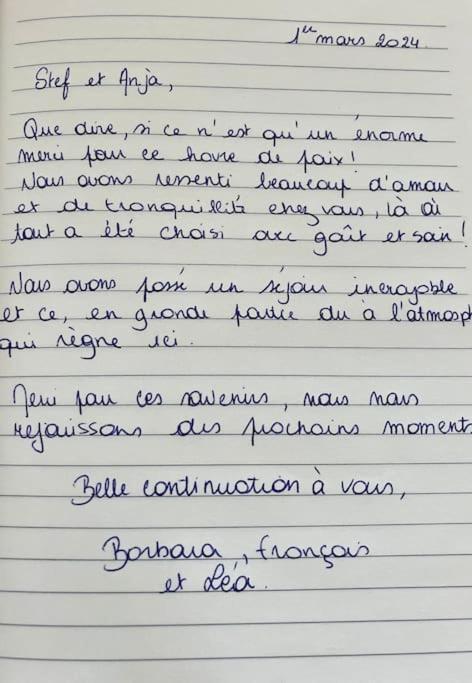 1er mars 2024.
Stef et Anja,
Que dire, si ce n'est qu'un énorme
merci pour ce havre de paix!
Nous avons ressenti beaucoup d'amour
et de tranquillité chez vous, là où
tout a été choisi avec goût et soin!
Nous avons passé un séjour incroyable
et ce, en grande partie du à l'atmosph
qui règne ici.
Merci pour ces souvenirs, nous nous
rejouissons des prochains moments
Belle continuation à vous,
Barbara, François
et Léa.